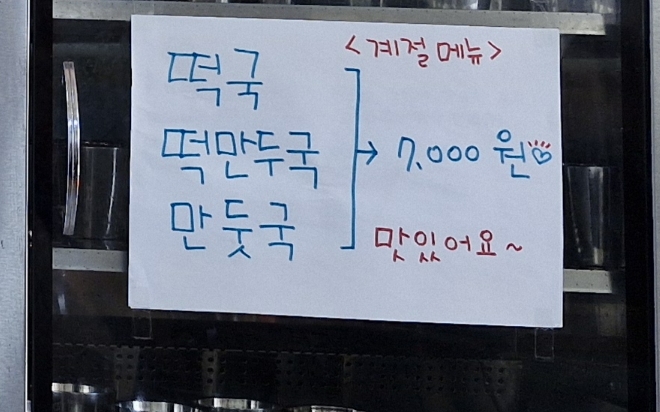 <계절 메뉴>
떡국
떡만두국
만둣국
7,000 원
맛있어요~